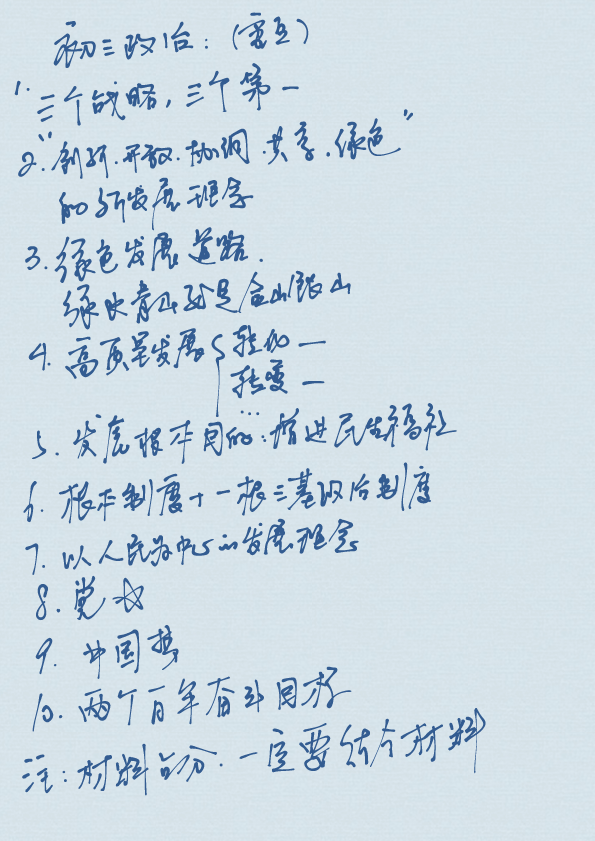 初三政治：（重点）
1. 三个战略，三个第一
2. “创新.开放.协调.共享.绿色”
的新发展理念
3. 绿色发展道路.
绿水青山就是金山银山
4. 高质量发展 转化一
转变一
...
5. 发展根本目的：增进民生福祉
6. 根本制度+一根三基政治制度
7. 以人民为中心的发展理念
8. 党
9. 中国梦
10. 两个百年奋斗目标
注：材料分. 一定要结合材料